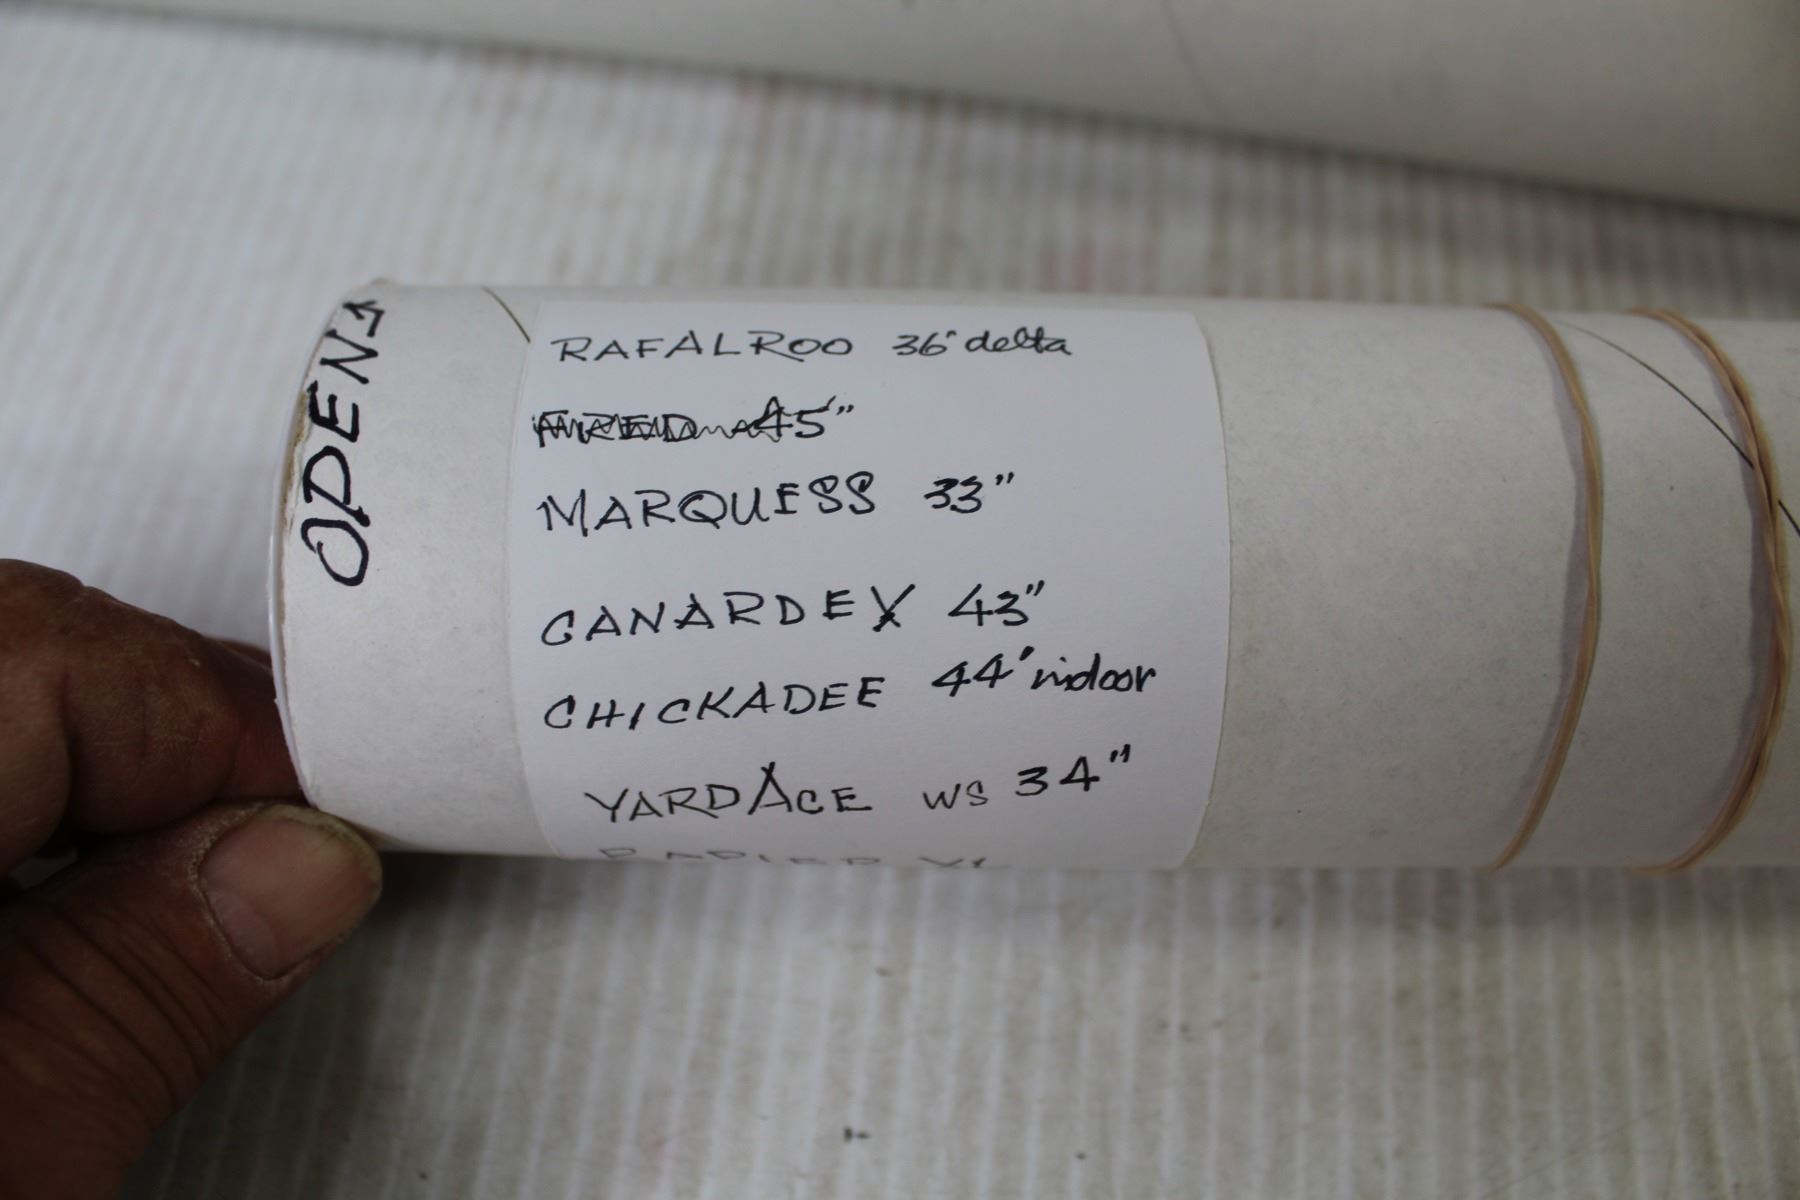 OPEN
RAFALROO 36" delta
FRED 45"
MARQUESS 33"
CANARDEX 43"
CHICKADEE 44" indoor
YARDACE WS 34"